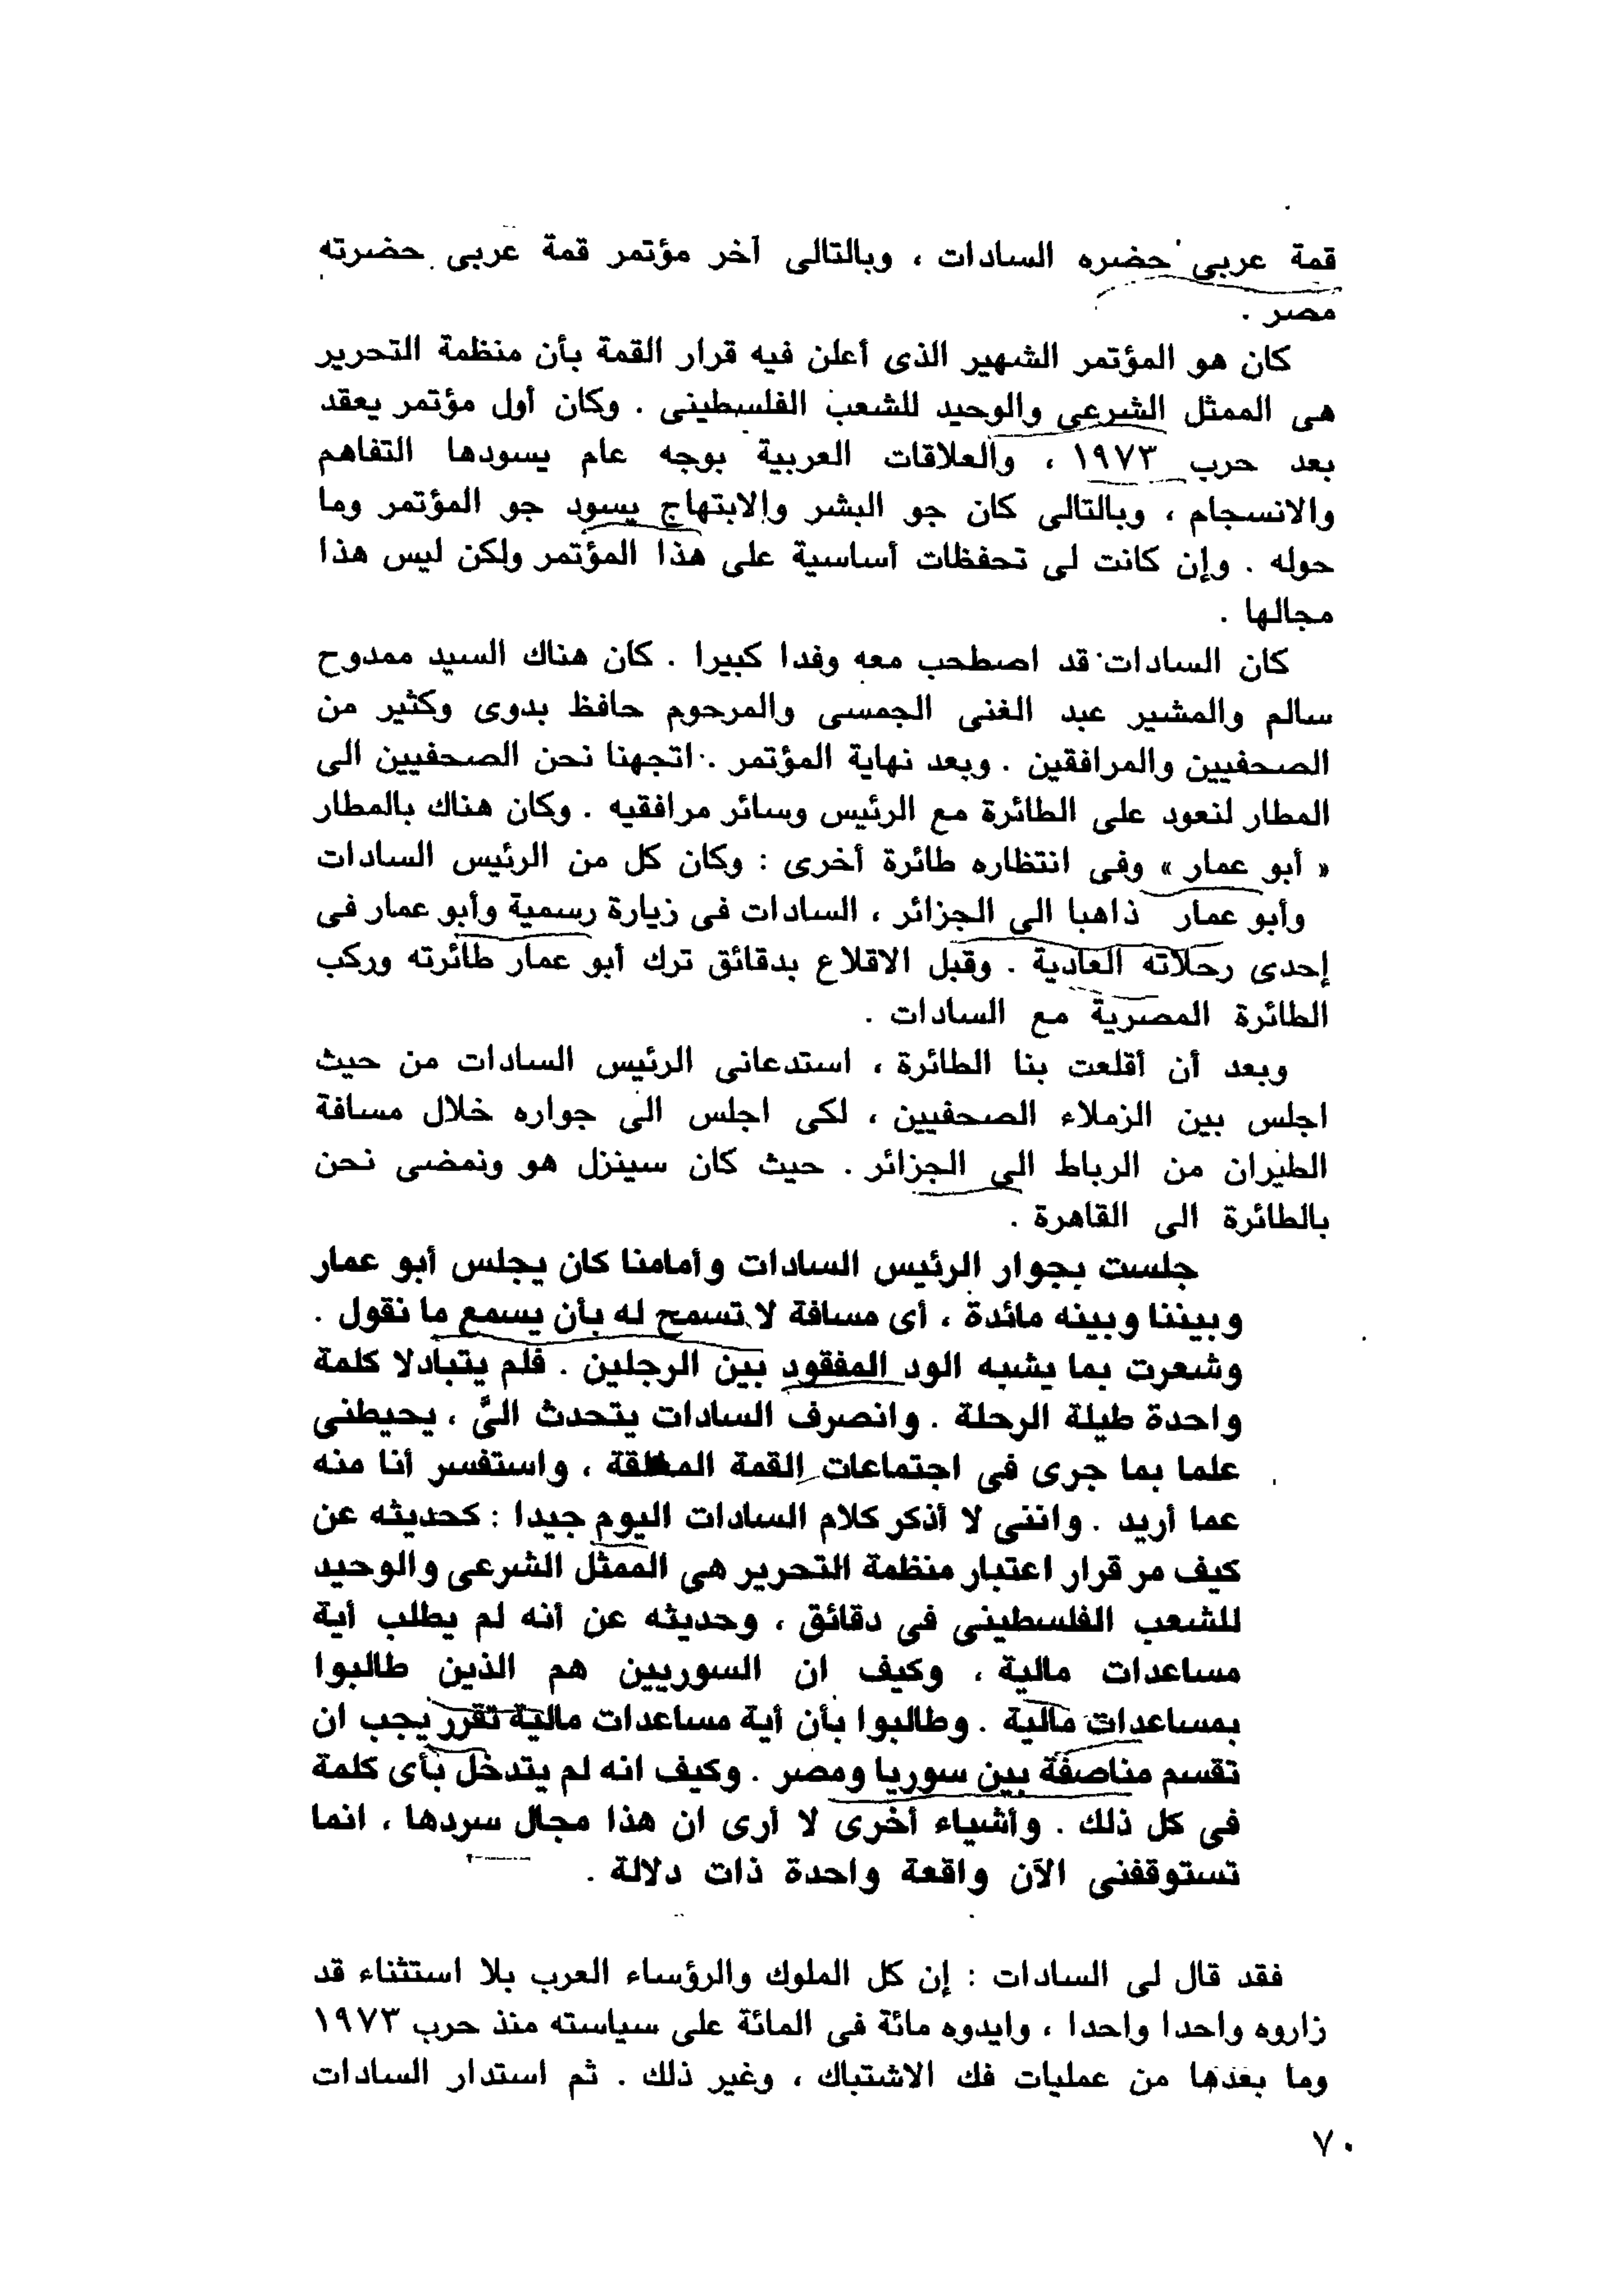 قمة عربى حضره السادات ، وبالتالى آخر مؤتمر قمة عربى حضرته
مصر .
كان هو المؤتمر الشهير الذى أعلن فيه قرار القمة بأن منظمة التحرير
هى الممثل الشرعى والوحيد للشعب الفلسطينى . وكان أول مؤتمر يعقد
بعد حرب ١٩٧٣ ، والعلاقات العربية بوجه عام يسودها التفاهم
والانسجام ، وبالتالى كان جو البشر والابتهاج يسود جو المؤتمر وما
حوله . وإن كانت لى تحفظات أساسية على هذا المؤتمر ولكن ليس هذا
مجالها .
كان السادات قد اصطحب معه وفدا كبيرا . كان هناك السيد ممدوح
سالم والمشير عبد الغنى الجمسى والمرحوم حافظ بدوى وكثير من
الصحفيين والمرافقين . وبعد نهاية المؤتمر . اتجهنا نحن الصحفيين الى
المطار لنعود على الطائرة مع الرئيس وسائر مرافقيه . وكان هناك بالمطار
« أبو عمار » وفى انتظاره طائرة أخرى : وكان كل من الرئيس السادات
وأبو عمار ذاهبا الى الجزائر ، السادات فى زيارة رسمية وأبو عمار فى
إحدى رحلاته العادية . وقبل الاقلاع بدقائق ترك أبو عمار طائرته وركب
الطائرة المصرية مع السادات .
وبعد أن أقلعت بنا الطائرة ، استدعانى الرئيس السادات من حيث
اجلس بين الزملاء الصحفيين ، لكى اجلس الى جواره خلال مسافة
الطيران من الرباط الى الجزائر . حيث كان سينزل هو ونمضى نحن
بالطائرة الى القاهرة .
جلست بجوار الرئيس السادات وأمامنا كان يجلس أبو عمار
وبيننا وبينه مائدة ، أى مسافة لا تسمح له بأن يسمع ما نقول .
وشعرت بما يشبه الود المفقود بين الرجلين . فلم يتبادلا كلمة
واحدة طيلة الرحلة . وانصرف السادات يتحدث الىَّ ، يحيطنى
علما بما جرى فى اجتماعات القمة المغلقة ، واستفسر أنا منه
عما أريد . واننى لا أذكر كلام السادات اليوم جيدا : كحديثه عن
كيف مر قرار اعتبار منظمة التحرير هى الممثل الشرعى والوحيد
للشعب الفلسطينى فى دقائق ، وحديثه عن أنه لم يطلب أية
مساعدات مالية ، وكيف ان السوريين هم الذين طالبوا
بمساعدات مالية . وطالبوا بأن أية مساعدات مالية تقرر يجب ان
تقسم مناصفة بين سوريا ومصر . وكيف انه لم يتدخل بأى كلمة
فى كل ذلك . وأشياء أخرى لا أرى ان هذا مجال سردها ، انما
تستوقفنى الآن واقعة واحدة ذات دلالة .
فقد قال لى السادات : إن كل الملوك والرؤساء العرب بلا استثناء قد
زاروه واحدا واحدا ، وايدوه مائة فى المائة على سياسته منذ حرب ١٩٧٣
وما بعدها من عمليات فك الاشتباك ، وغير ذلك . ثم استدار السادات
٧٠